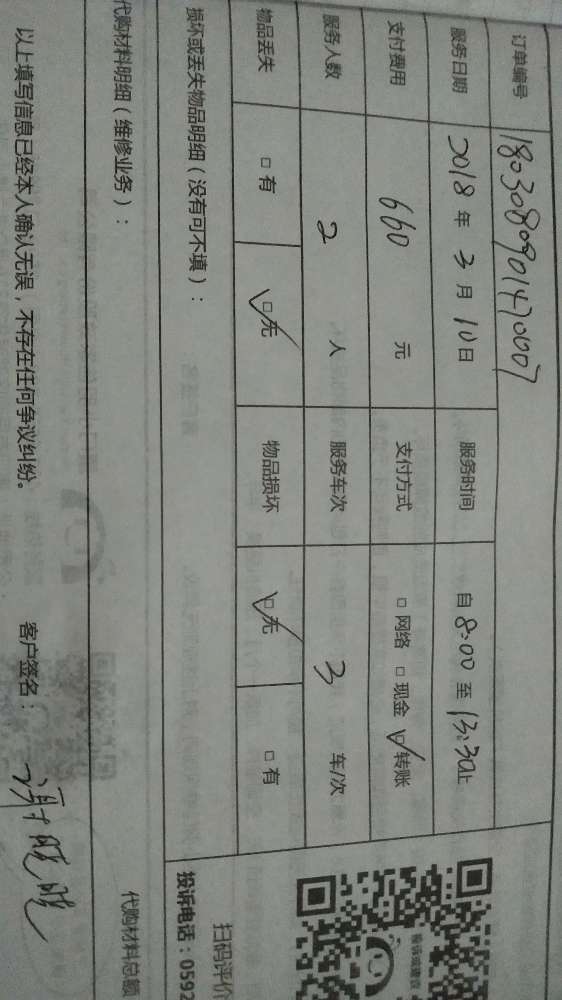 订单编号 1803080901470007
服务日期 2018 年 3 月 10 日 服务时间 自 8:00 至 13:30止
支付费用 660 元 支付方式 □ 网络 □ 现金 ☑ 转账
服务人数 2 人 服务车次 3 车/次
物品丢失 □ 有 ☑ 无 物品损坏 ☑ 无 □ 有
损坏或丢失物品明细（没有可不填）：
投诉或建议
扫码评价
投诉电话：0592
代购材料明细（维修业务）： 代购材料总额
以上填写信息已经本人确认无误，不存在任何争议纠纷。 客户签名：